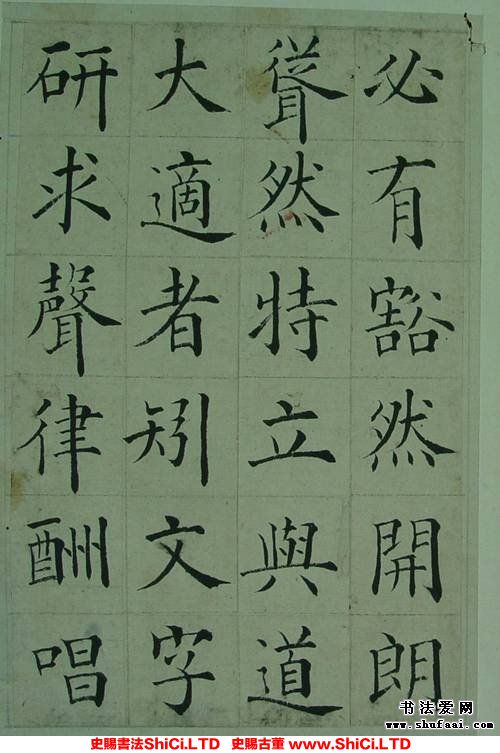 必有豁然開朗
聳然特立與道
大適者矧文字
研求聲律酬唱
书法爱网
www.shufaai.com
史賜書法ShiCi.LTD 史賜古董 www.ShiCi.LTD